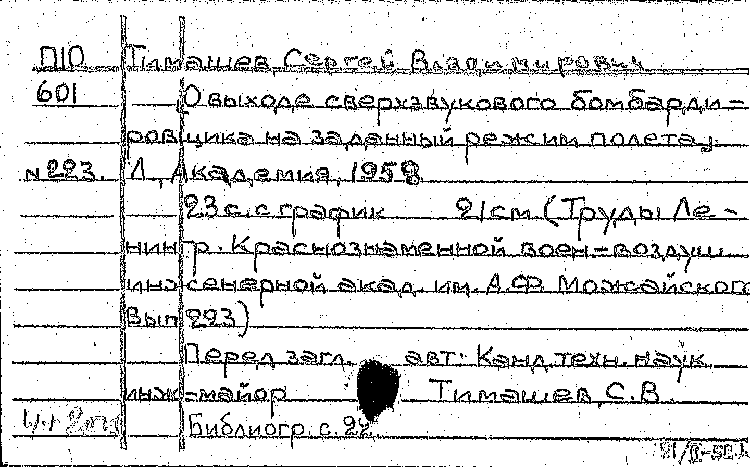 П10 Тимашев, Сергей Владимирович
601 О выходе сверхзвукового бомбарди-
ровщика на заданный режим полета.
№223. Л., Академия, 1958
23 с. с график 21 см. (Труды Ле-
нингр. Краснознаменной воен-воздуш
инженерной акад. им. А.Ф. Можайского
Вып 223)
Перед загл. авт: Канд. техн. наук
инж-майор Тимашев, С.В.
Библиогр. с. 22